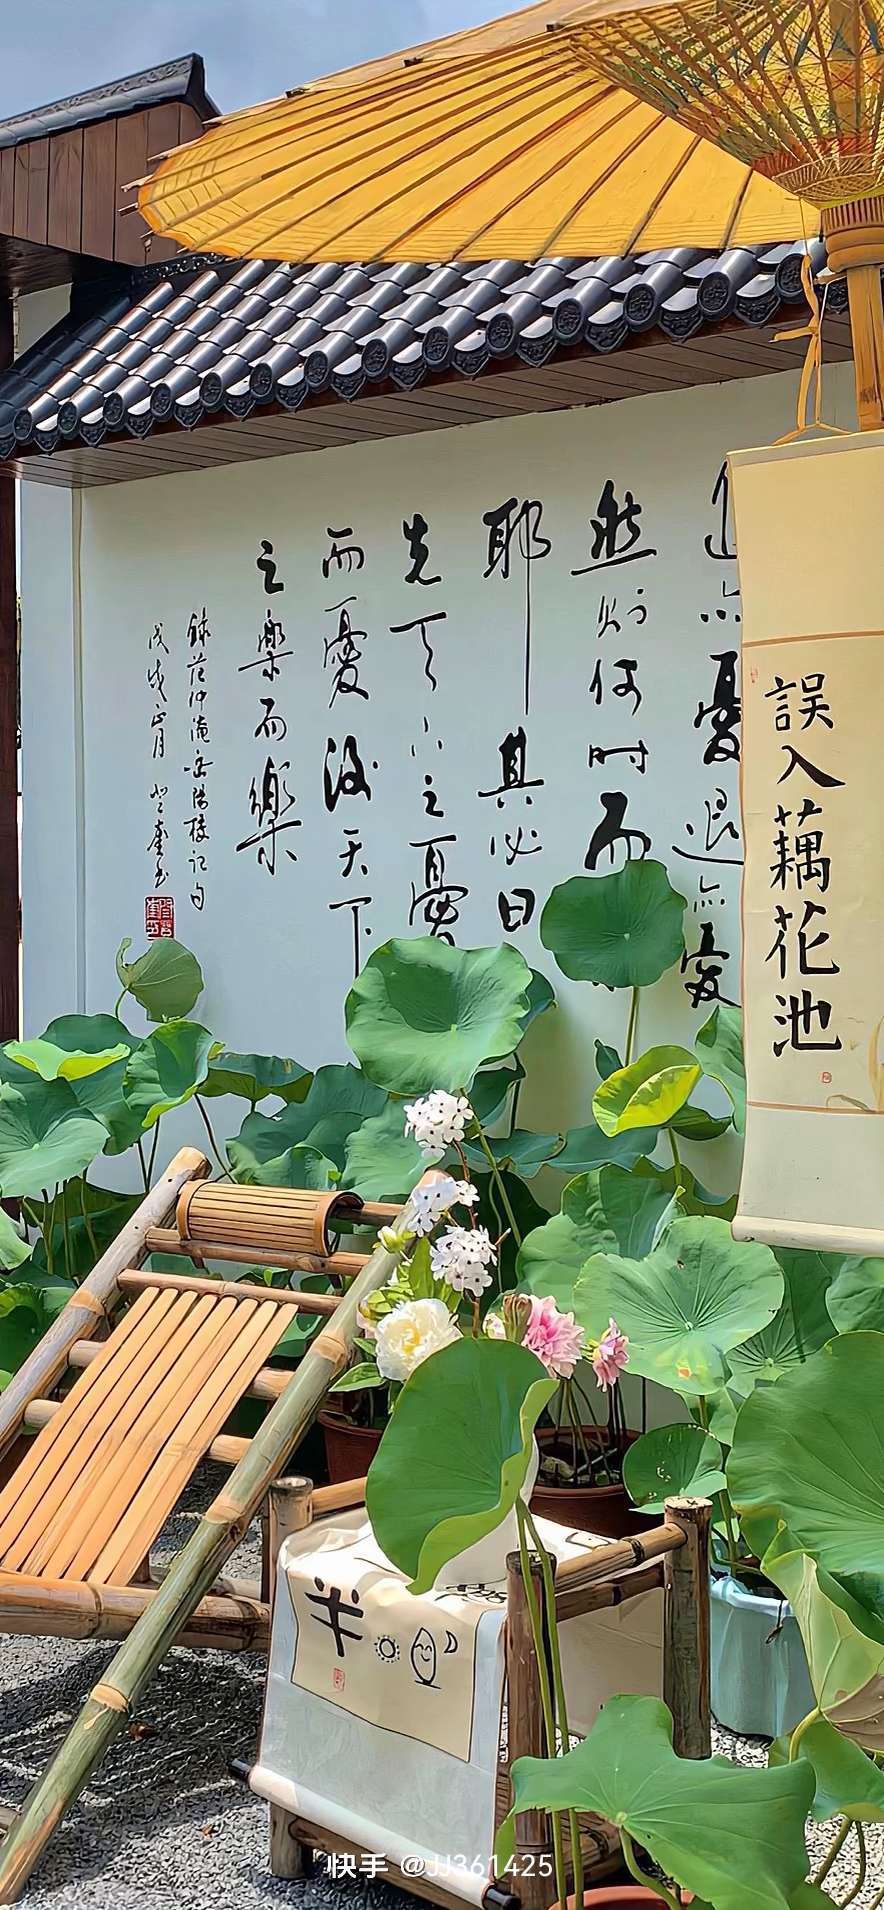 誤入藕花池
進亦憂退亦憂
然則何時而
耶其必曰
先天下之憂
而憂後天下
之樂而樂
錄范仲淹岳陽樓記句
戊戌正月
半
快手 @JJ361425